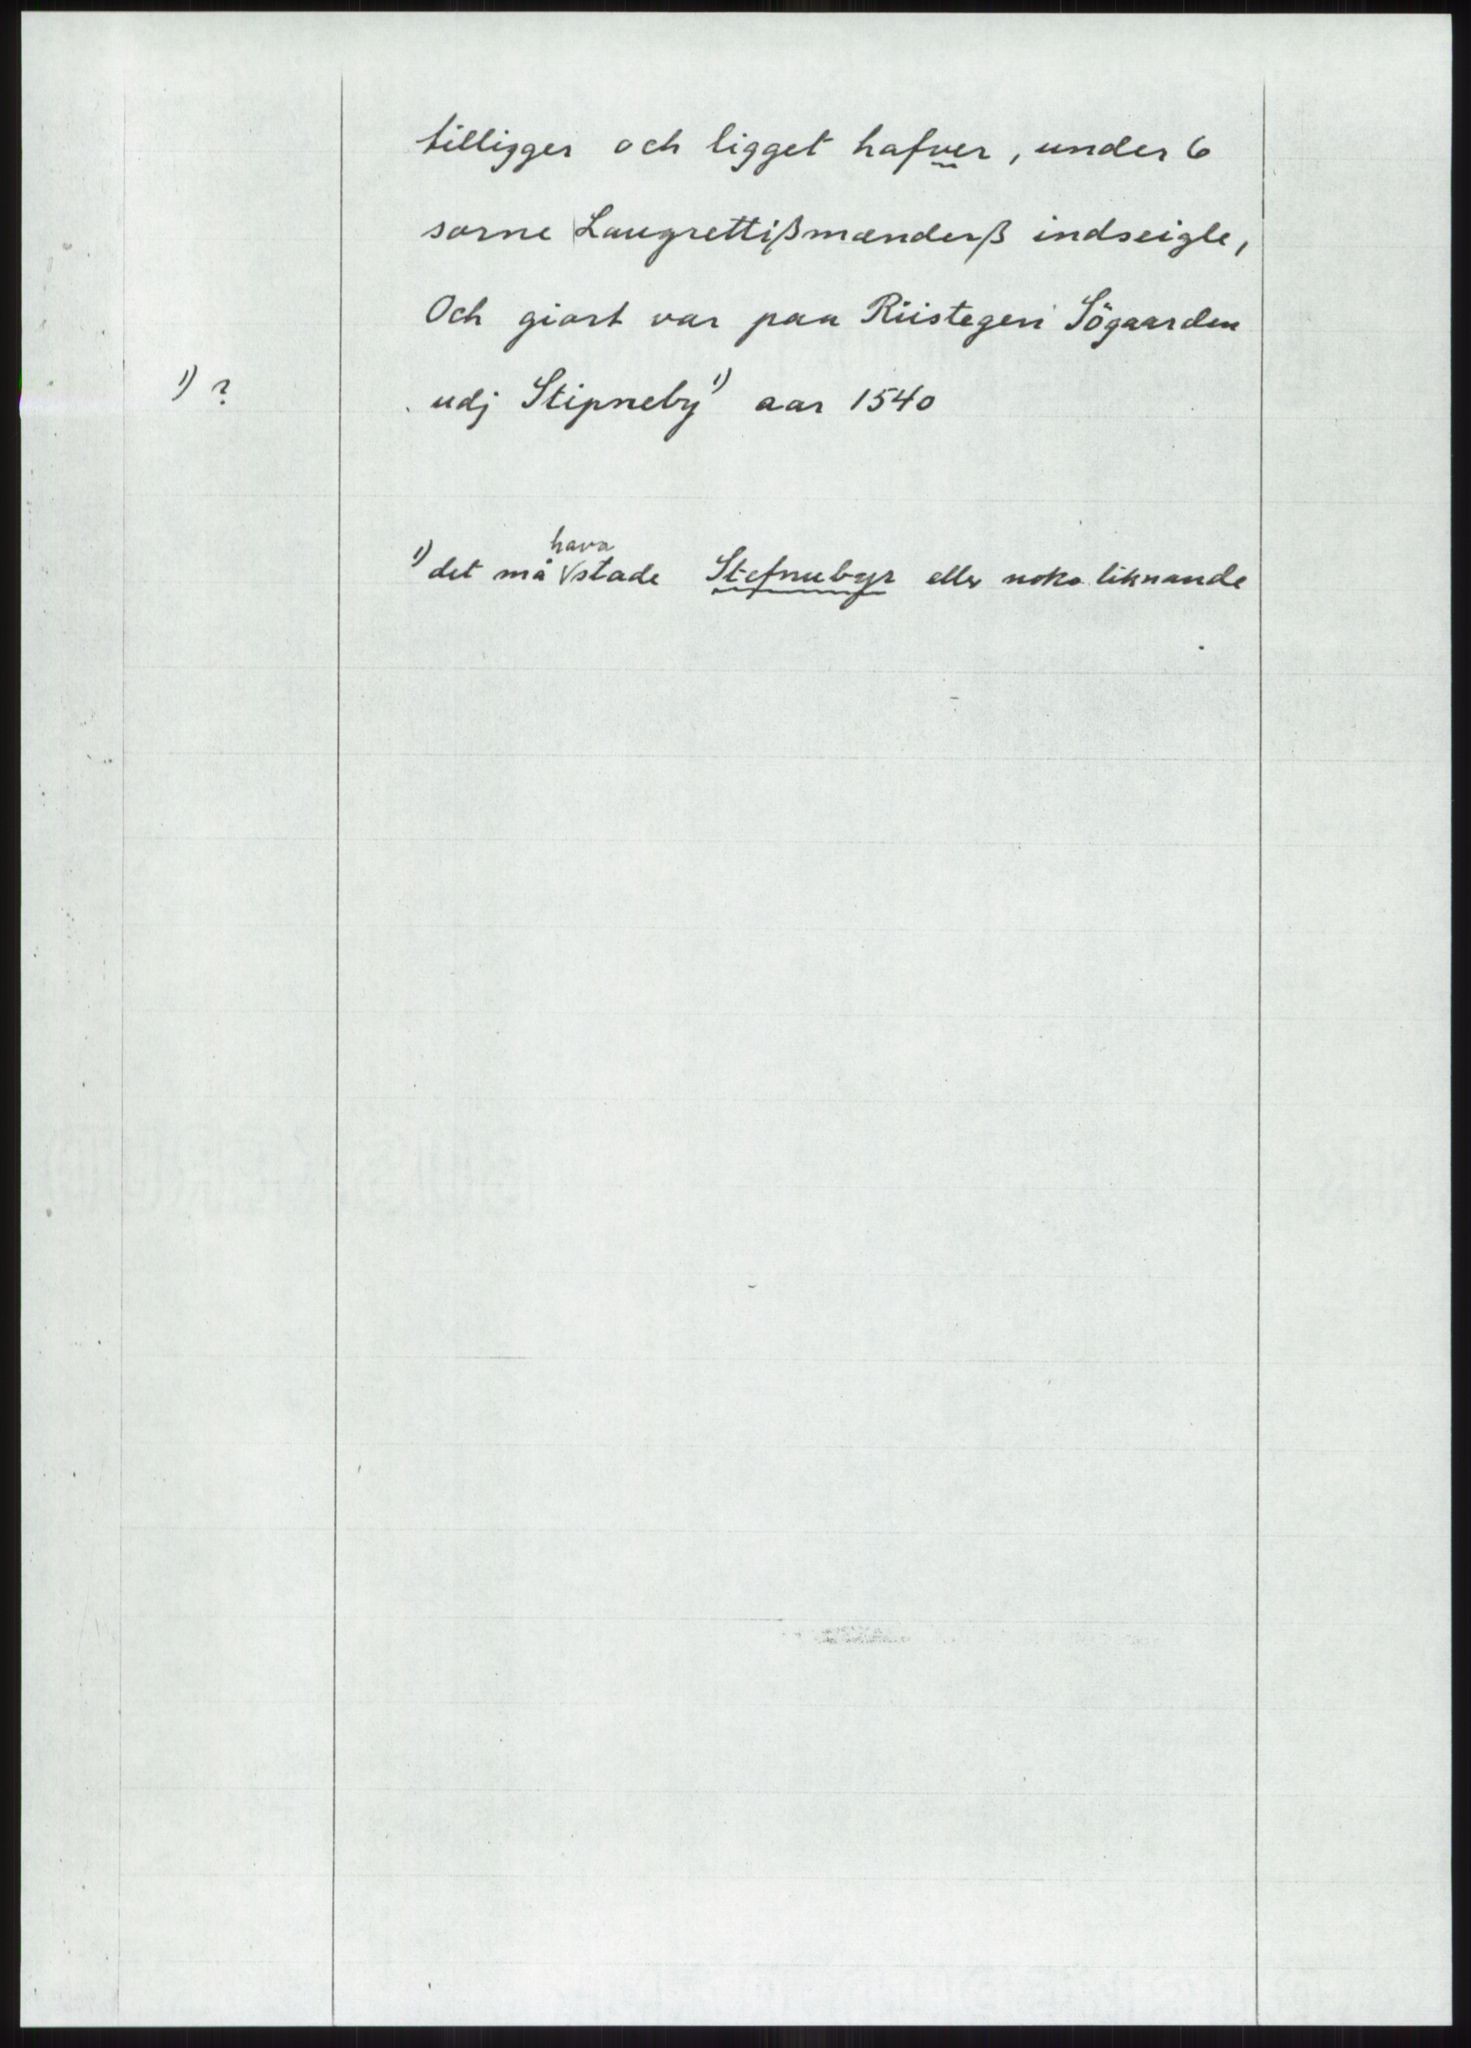 tilligger och ligget hafver, under 6
sorne Laugrettißmænderß indseigle,
Och giort var paa Riistegeri Sögaarden
1) ?
udj Stipneby 1) aar 1540
1) det må hava stade Stefnubyr eller noko liknande